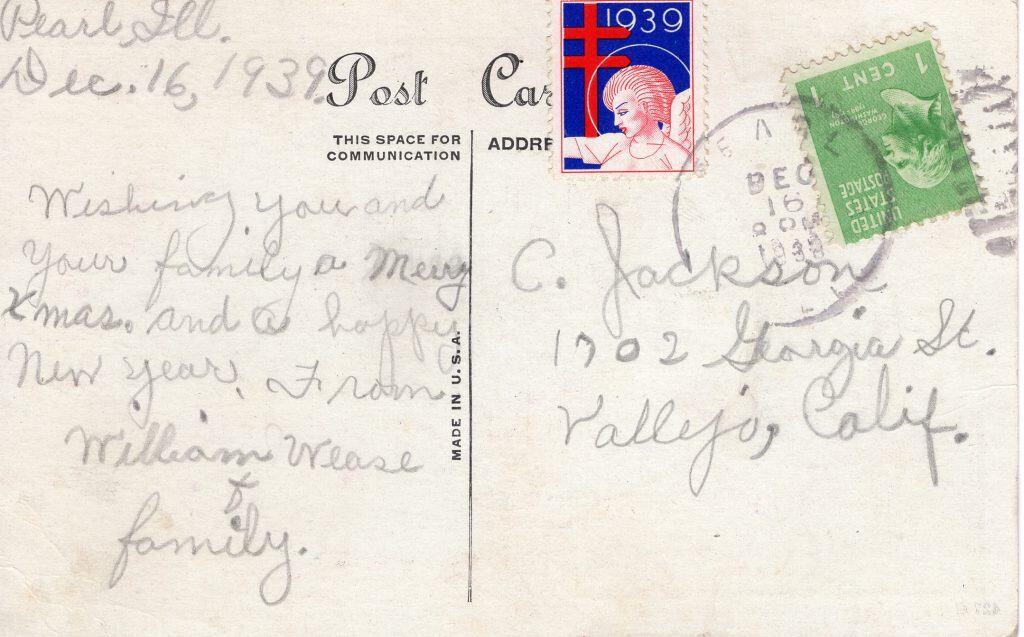 Pearl, Ill.
Dec. 16, 1939.
Post Car
THIS SPACE FOR
COMMUNICATION
ADDRE
1939
1 CENT 1
GEORGE
WASHINGTON
UNITED
STATES
POSTAGE
DEC
16
1939
Wishing you and
your family a Merry
Xmas. and a happy
New year. From
William Wease
&
family.
MADE IN U.S.A.
C. Jackson
1702 Georgia St.
Vallejo, Calif.